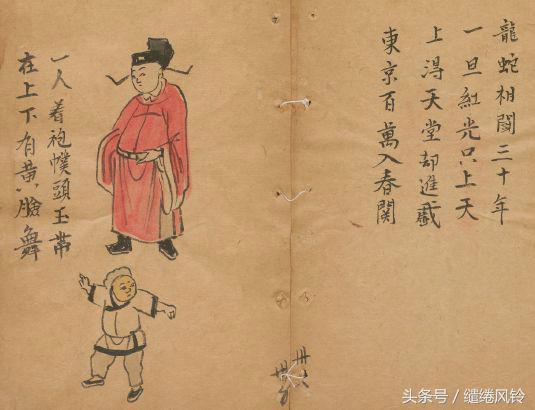 龍蛇相鬪三十年
一旦紅光只上天
上得天堂却進截
東京百萬入春關
一人着袍幞頭玉帶
在上下有黄臉舞
卅六
头条号 / 缱绻风铃